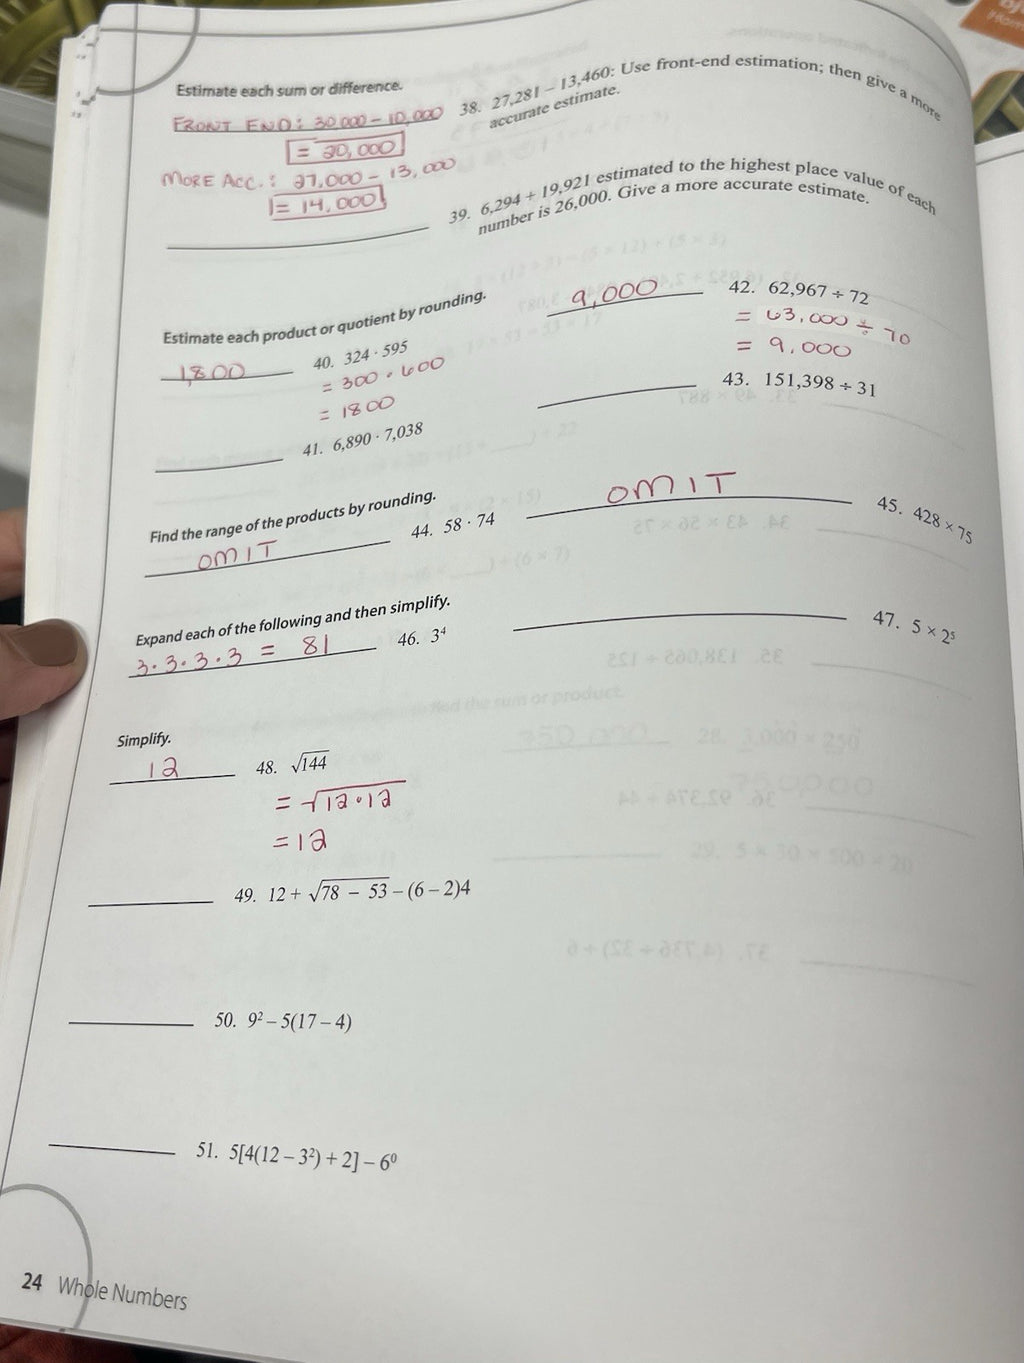 Estimate each sum or difference.
FRONT END: 30,000 - 10,000
= 20,000
MORE ACC.: 27,000 - 13,000
= 14,000
38. 27,281 – 13,460: Use front-end estimation; then give a more
accurate estimate.
39. 6,294 + 19,921 estimated to the highest place value of each
number is 26,000. Give a more accurate estimate.
Estimate each product or quotient by rounding.
1,800 40. 324 · 595
= 300 · 600
= 1800
41. 6,890 · 7,038
9,000 42. 62,967 ÷ 72
= 63,000 ÷ 70
= 9,000
43. 151,398 ÷ 31
Find the range of the products by rounding.
OMIT 44. 58 · 74
OMIT 45. 428 × 75
Expand each of the following and then simplify.
3·3·3·3 = 81 46. 3⁴
47. 5 × 2⁵
Simplify.
12 48. √144
= √12·12
= 12
49. 12 + √78 – 53 – (6 – 2)4
50. 9² – 5(17 – 4)
51. 5[4(12 – 3²) + 2] – 6⁰
24 Whole Numbers